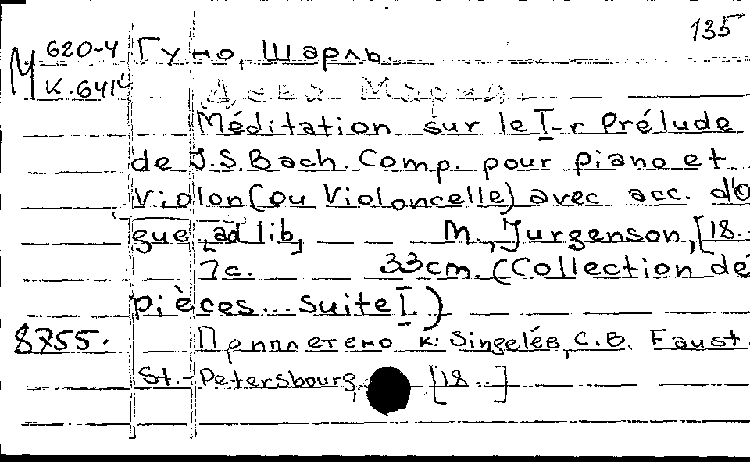 135
М 620-4 Гуно, Шарль.
К.641 Дева Мария.
Méditation sur le I-r Prélude
de J.S.Bach. Comp. pour piano et
Violon (ou Violoncelle) avec acc. d'o
gue, ad lib, M., Jurgenson, [18..
7с. 33cm. (Collection de
pièces... Suite I.)
8755. Приплетено к: Singelée, C.B. Faust.
St.-Petersbourg, [18..]